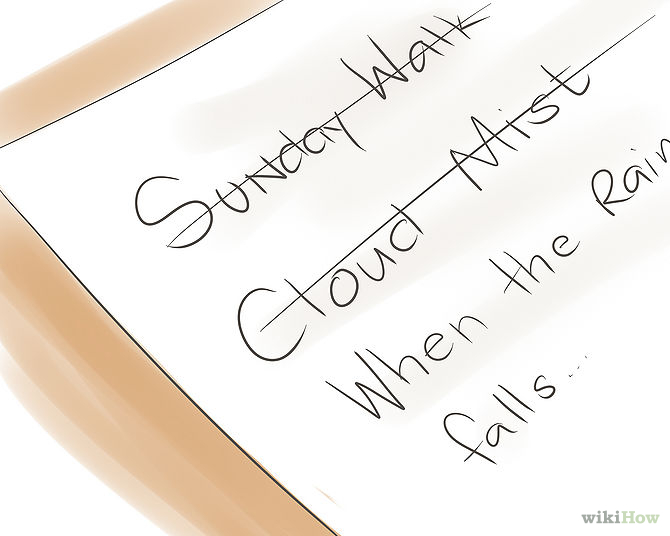 Sunday Walk
Cloud Mist
When the Rain
falls...
wikiHow